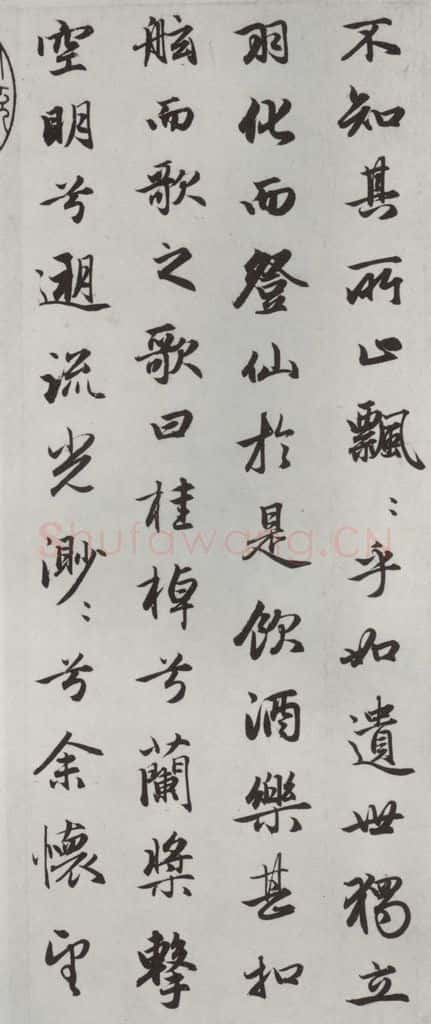 不知其所止飄〻乎如遺世獨立
羽化而登仙於是飲酒樂甚扣
舷而歌之歌曰桂棹兮蘭槳擊
空明兮遡流光渺〻兮余懷望
Shufawang.CN